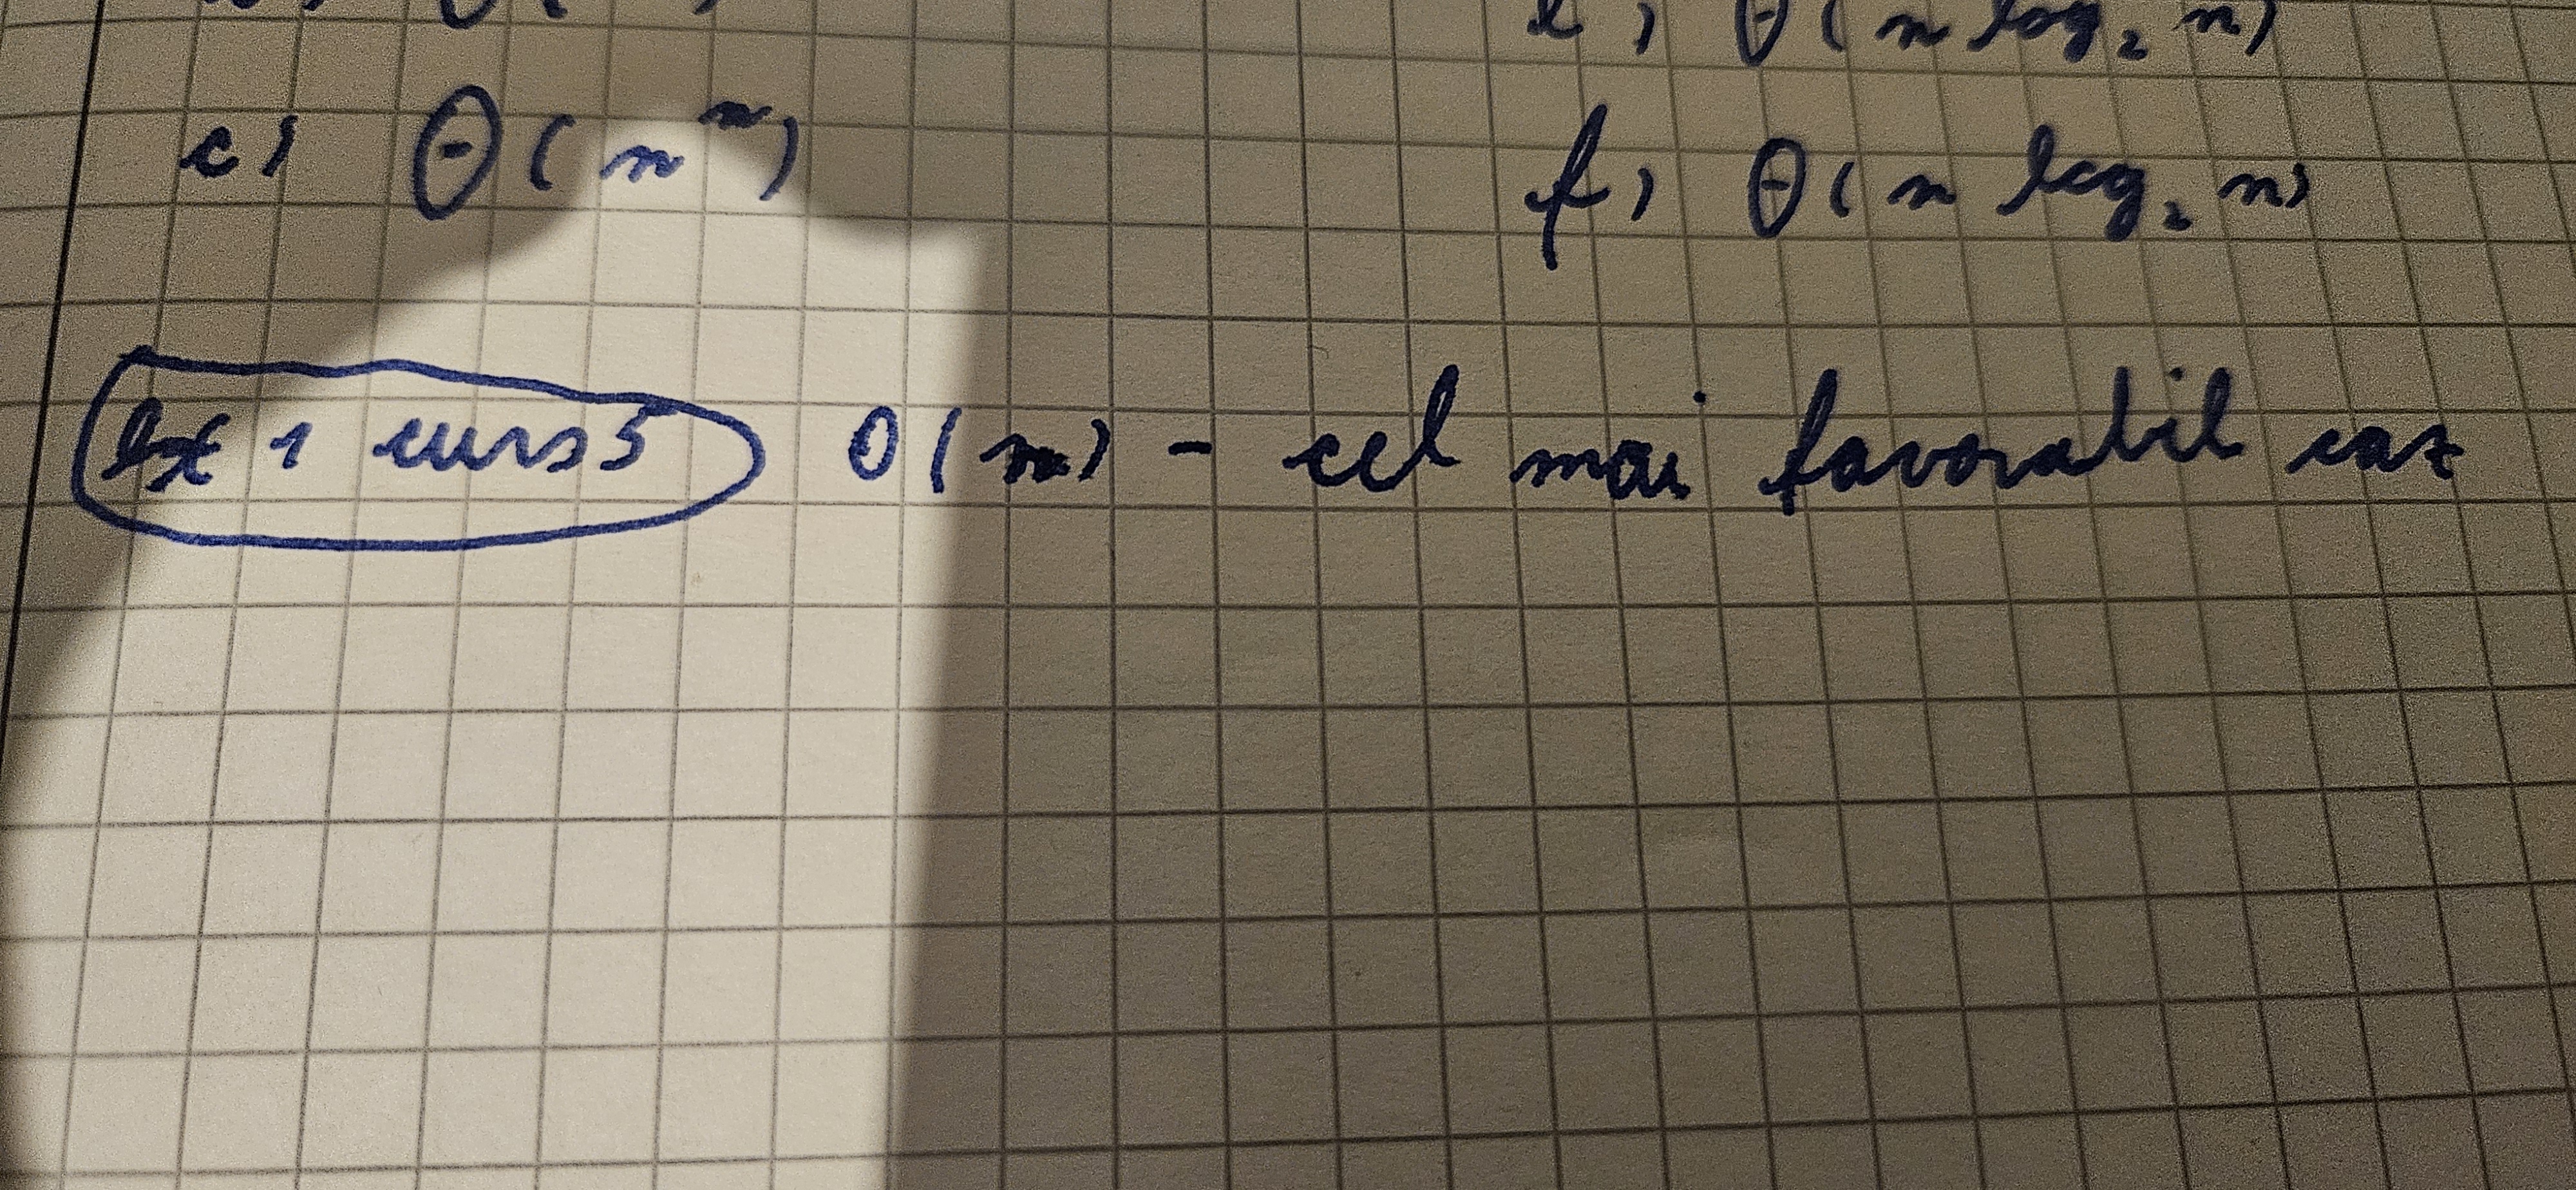 e) Θ(n log₂ n)
c) Θ(nⁿ)
f) Θ(n log₂ n)
Ex 1 curs 5 O(n) - cel mai favorabil caz